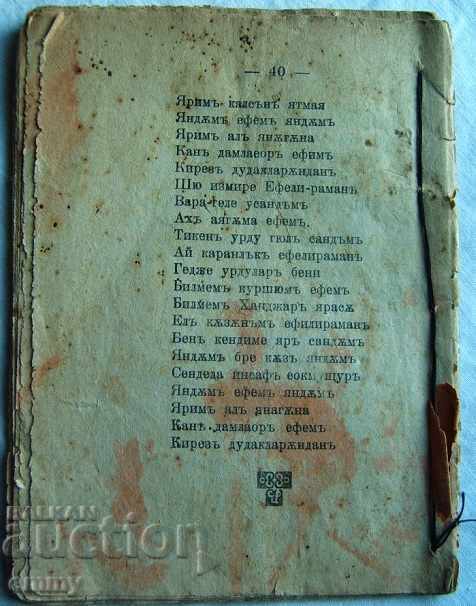 — 40 —
Яримъ калсънъ ятмая
Яндѫмъ ефемъ яндѫмъ
Яримъ алъ янѫгѫна
Канъ дамлаеоръ ефимъ
Кирезъ дудакларѫндан
Щю измире Ефели-раманъ
Вара геле усандъмъ
Ахъ аягѫма ефемъ.
Тикенъ урду гюлъ сандъмъ
Ай каранлъкъ ефелираманъ
Гедже урдулар бени
Билмем куршюмъ ефемъ
Билмем Ханджаръ ярасѫ
Елъ кѫзѫнъмъ ефилираманъ
Бенъ кендиме яръ сандѫмъ
Яндѫмъ бре кѫзъ яндѫмъ
Сендеда инсафъ еокм щуръ
Яндѫмъ ефемъ яндѫмъ
Яримъ алъ янагѫна
Канъ дамлаоръ ефемъ
Кирезъ дудакларѫндан
БАЛКАН
аукцион
emmy